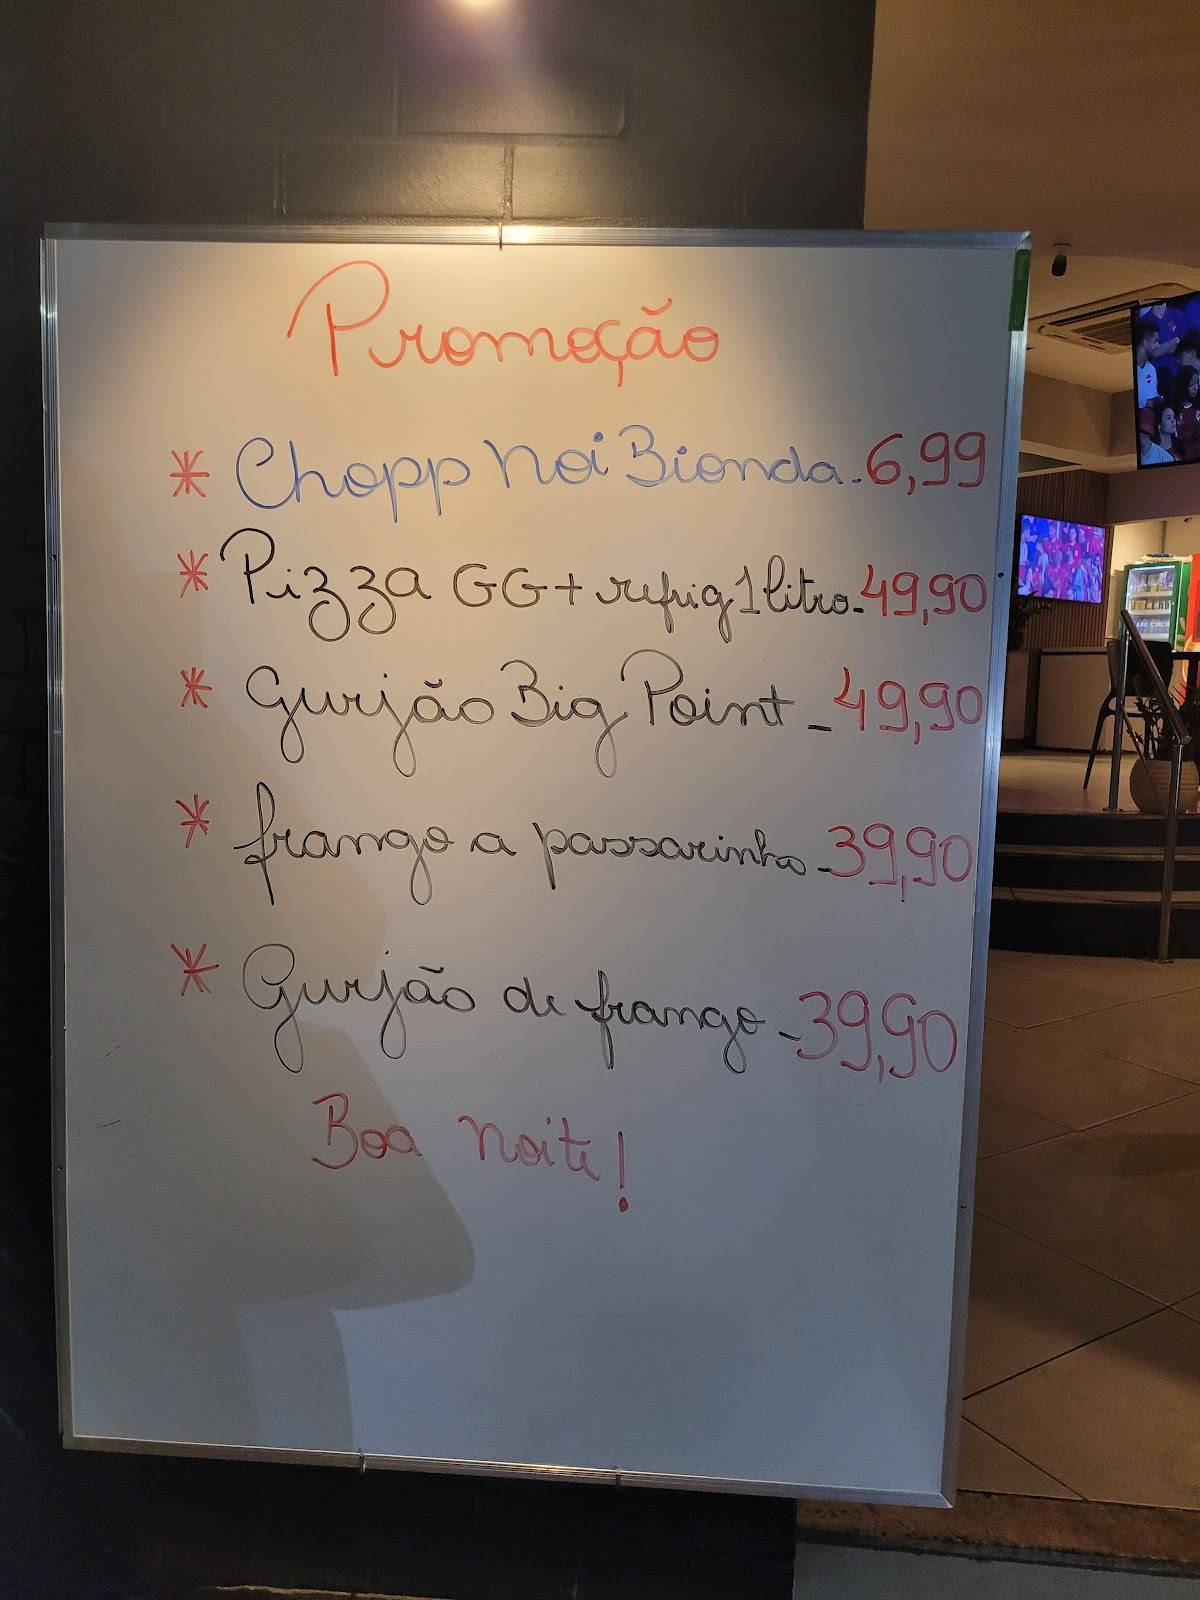 Promoção
* Chopp Noi Bionda. 6,99
* Pizza GG + refrig 1 litro - 49,90
* Gurjão Big Point - 49,90
* frango a passarinho - 39,90
* Gurjão de frango - 39,90
Boa Noite!